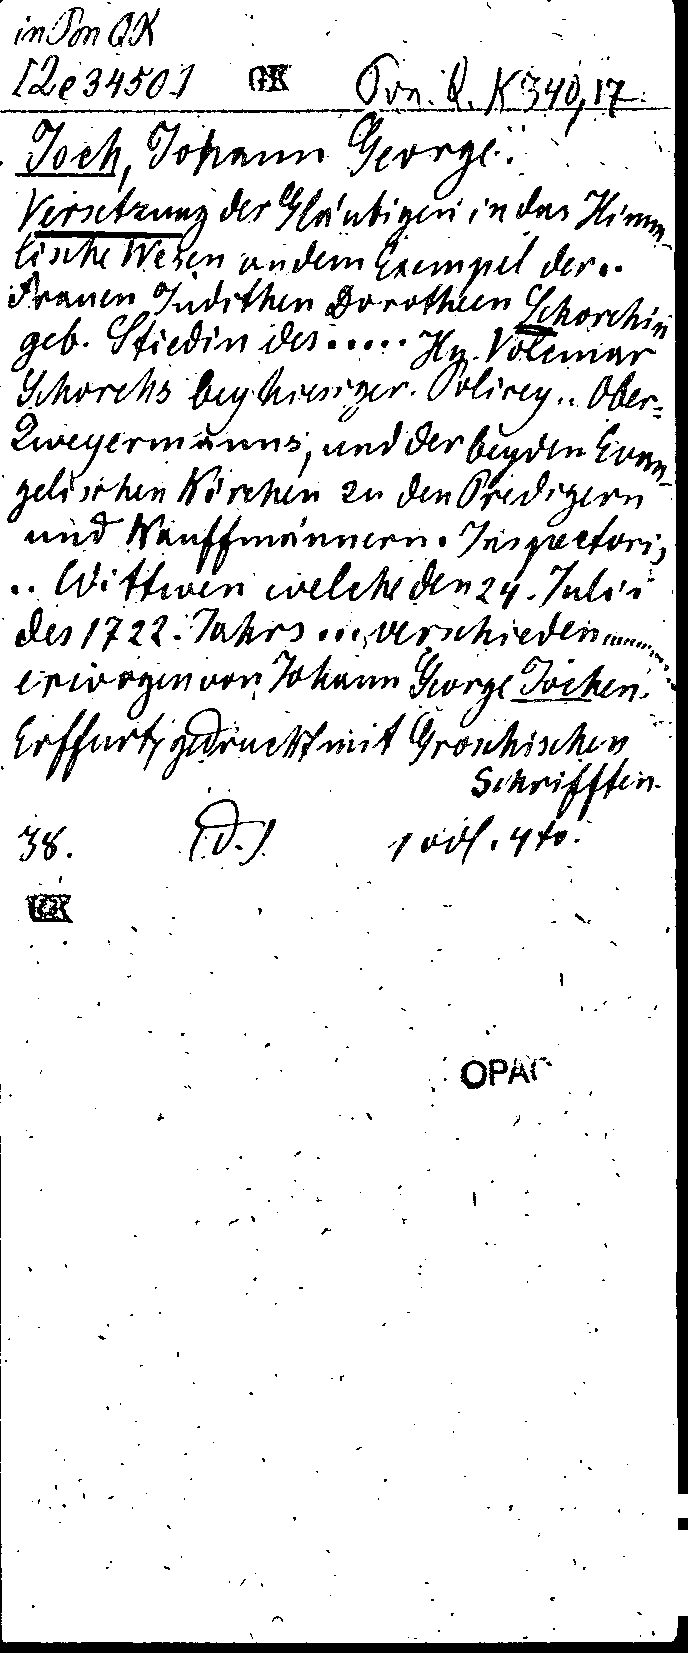 in Pon QK
[Ze 3450] GK Pon. Q. K 340,17.
Joch, Johann George:
Versetzung der Gläubigen in das Himm-
lische Wesen an dem Exempel der..
Frauen Judithen Dorotheen Schorchin
geb. Stiedin des ..... Hn. Volcmar
Schorchs bey hiesiger. Policey.. Ober-
Zweyermanns, und der beyden Evan-
gelischen Kirchen zu den Predigern
und Kauffmännern. Inspectoris
.. Wittwen welche den 24. Julii
des 1722. Jahrs ... verschieden
erwogen von Johann George Jochen.
Erffurt, gedruckt mit Groschischen
Schrifften.
38. (d.) 1 vol. 4to.
GK
OPAC